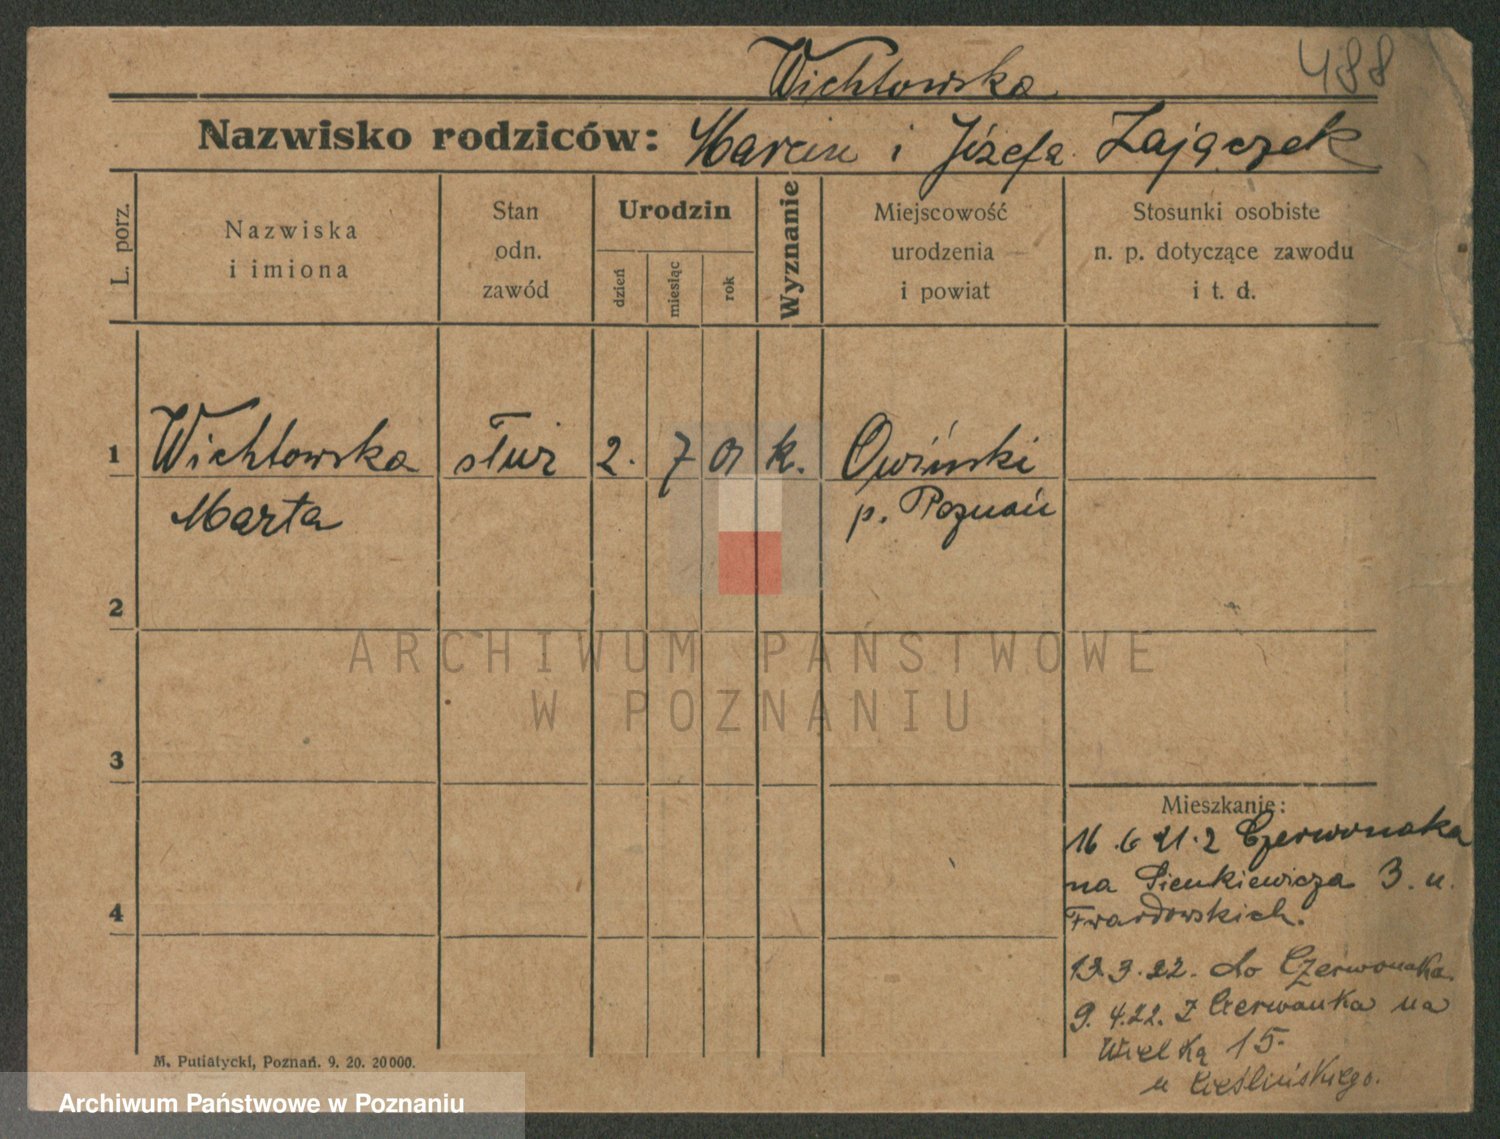 Wichłowska
488
Nazwisko rodziców: Marcin i Józefa Zajączek
L. porz.
Nazwiska
i imiona
Stan
odn.
zawód
Urodzin
dzień
miesiąc
rok
Wyznanie
Miejscowość
urodzenia
i powiat
Stosunki osobiste
n. p. dotyczące zawodu
i t. d.
1 Wichłowska służ 2. 7 01 k. Owiński
Marta p. Poznań
2
3
4
ARCHIWUM PAŃSTWOWE
W POZNANIU
Mieszkanie:
16.6 21. z Czerwonaka
na Sienkiewicza 3. u.
Twardowskich.
13.3.22. do Czerwonaka.
9. 4.22. Z Czerwonka na
Wielką 15.
u Cieślińskiego.
M. Putiatycki, Poznań. 9. 20. 20000.
Archiwum Państwowe w Poznaniu